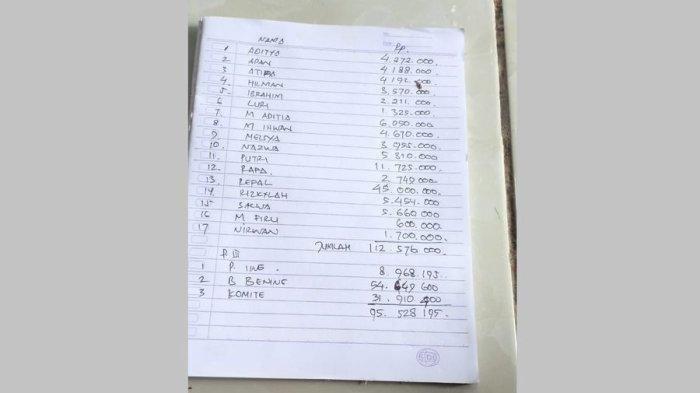 NAMA Rp.
1 ADITYA 4.272.000.
2 APAN 4.188.000.
3 ATIFA 4.192.000
4. HILMAN 3.570.000.
5. IBRAHIM 2.211.000.
6 LURI 1.325.000.
7. M ADITIA 6.090.000
8. M IHWAN 4.670.000.
9. MELSYA 3.955.000.
10. NAZWA 5.310.000
11. PUTRI 11.725.000
12. RAPA. 2.749.000
13. REPAL 45.000.000.
14. RIZKYLAH 5.454.000
15 SALWA 5.660.000
16 M FIRLI 600.000
17 NIRWAN 1.700.000.
JUMLAH 112.576.000.
P. III
1 P. IING. 8.968.195
2 B BENING 54.649.600
3 KOMITE 31.910.400
95.528.195.
SIDU